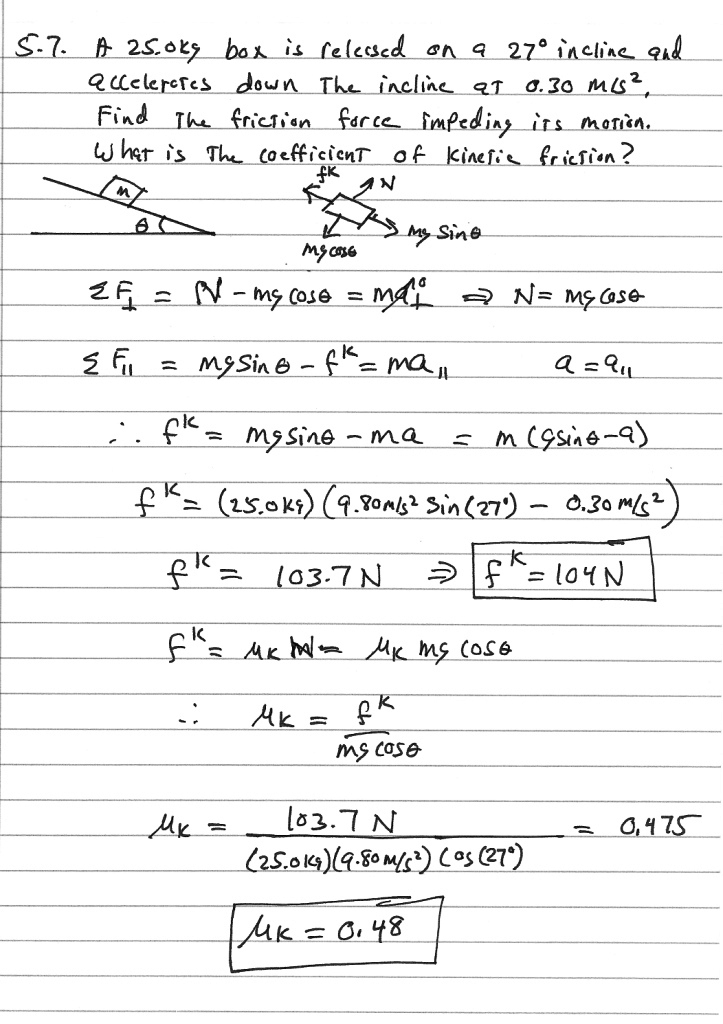 5.7. A 25.0kg box is released on a 27° incline and
accelerates down The incline at 0.30 m/s²,
Find The friction force impeding its motion.
What is The coefficient of kinetic friction?
m
θ
fᴷ
N
mg sinθ
mg cosθ
ΣF⊥ = N - mg cosθ = ma⊥ 0 ⇒ N = mg cosθ
ΣF∥ = mg sinθ - fᴷ = ma∥ a = a∥
∴ fᴷ = mg sinθ - ma = m(g sinθ - a)
fᴷ = (25.0kg)(9.80m/s² Sin(27°) - 0.30 m/s²)
fᴷ = 103.7 N ⇒ fᴷ = 104 N
fᴷ = μK N = μK mg cosθ
∴ μK = fᴷ
mg cosθ
μK = 103.7 N = 0.475
(25.0kg)(9.80 m/s²) Cos(27°)
μK = 0.48